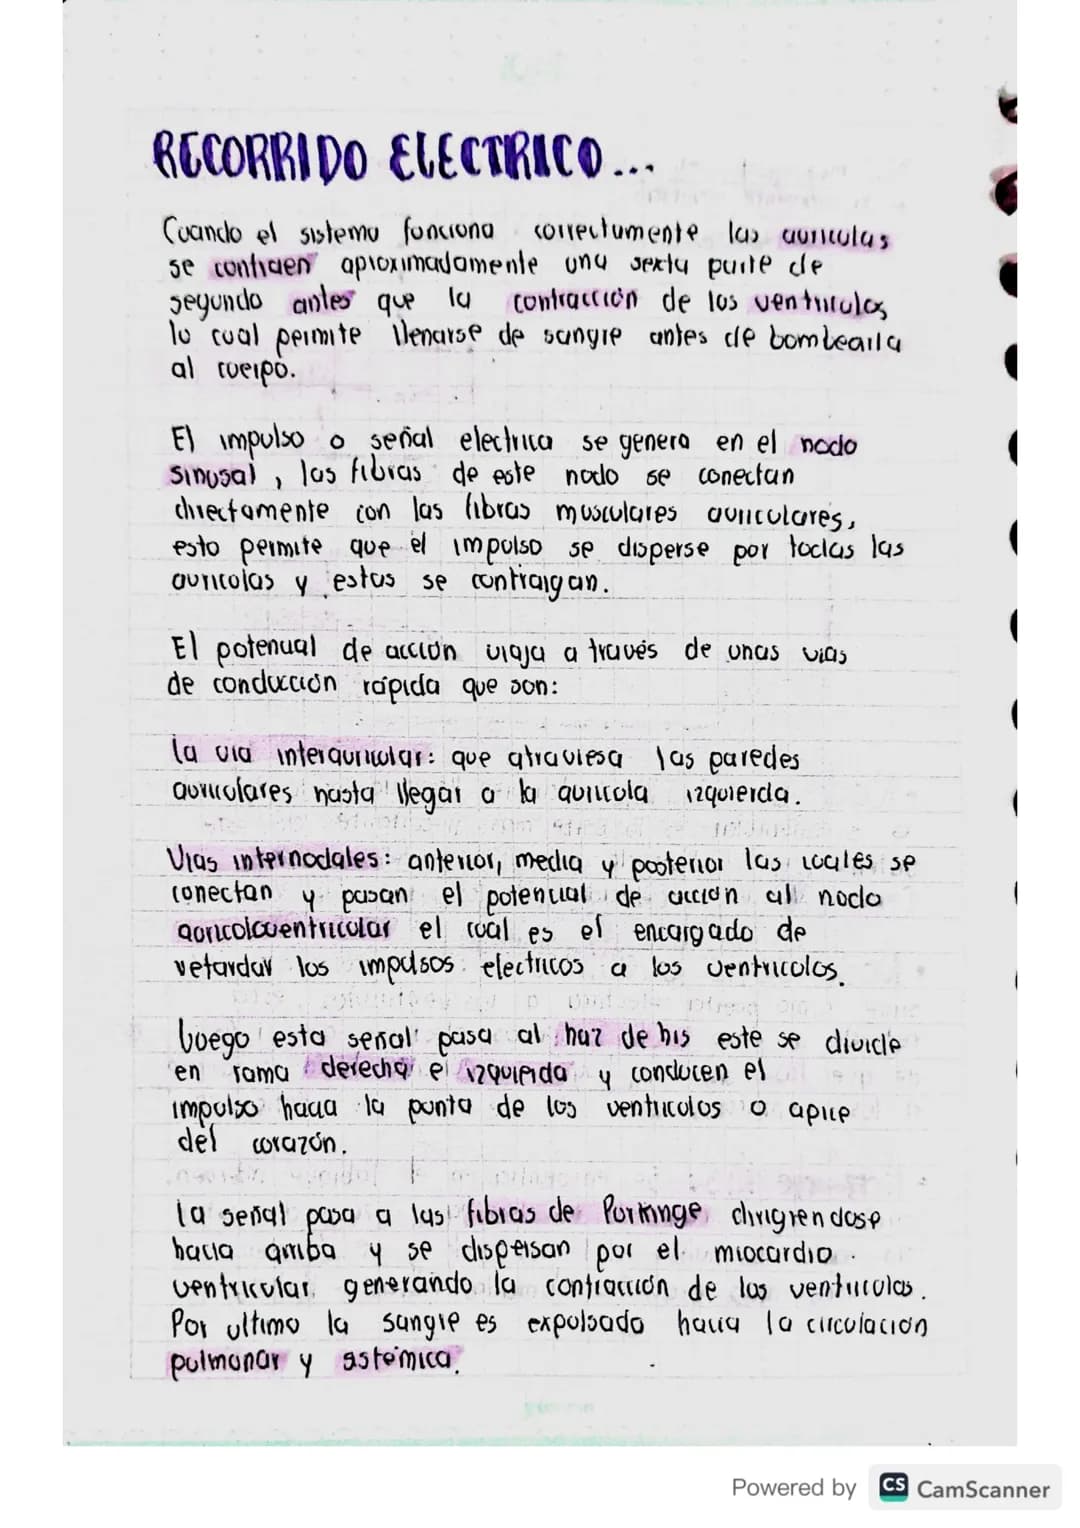 RECORRIDO ELECTRICO...
Cuando el sistema funciona correctamente las auriculas
se contraen aproximadamente una sexta parte de
segundo antes que la contracción de los ventriculos
lo cual permite llenarse de sangre antes de bombearla
al cuerpo.
El impulso o señal electrica se genera en el nodo
sinusal, las fibras de este nodo se conectan
directamente con las fibras musculares auriculares,
esto permite que el impulso se disperse por todas las
auricolas y estas se contraigan.
El potencial de acción viaja a través de unas vias
de conducción rápida que son:
la via interauricular: que atraviesa las paredes
auriculares hasta llegar a la auricola izquierda.
Vias internodales: anterior, media y posterior las cuales se
conectan y pasan el potencial de acción al nodo
auricoloventricular el cual es el encargado de
retardar los impulsos electricos a los ventricolos.
luego esta señal pasa al haz de his este se divide
en rama derecha e izquierda y conducen el
impulso hacia la punta de los ventricolos o apice
del corazón.
la señal pasa a las fibras de Purkinge dirigiendose
hacia arriba y se dispersan por el miocardio
ventricular generando la contracción de los ventriculos.
Por ultimo la sangre es expulsada hacia la circulación
pulmonar y sistémica.
Powered by CS CamScanner